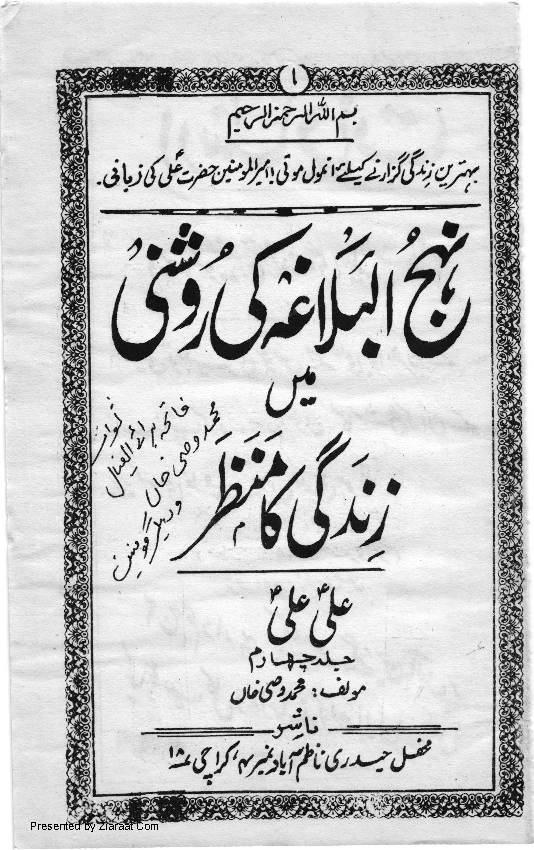 ۱
بسم اللہ الرحمن الرحیم
بہترین زندگی گزارنے کیلئے انمول موتی! امیرالمومنین حضرت علیؑ کی زبانی.
نہج البلاغہ کی روشنی
میں
زندگی کا منظر
فاتحہ برائے ایصال ثواب
محمد وصی خاں
و دیگر مومنین
علیؑ علیؑ
جلد چہارم
مولف: محمد وصی خاں
ناشر
محفل حیدری ناظم آباد نمبر ۴، کراچی ۱۸
Presented by Ziaraat.Com